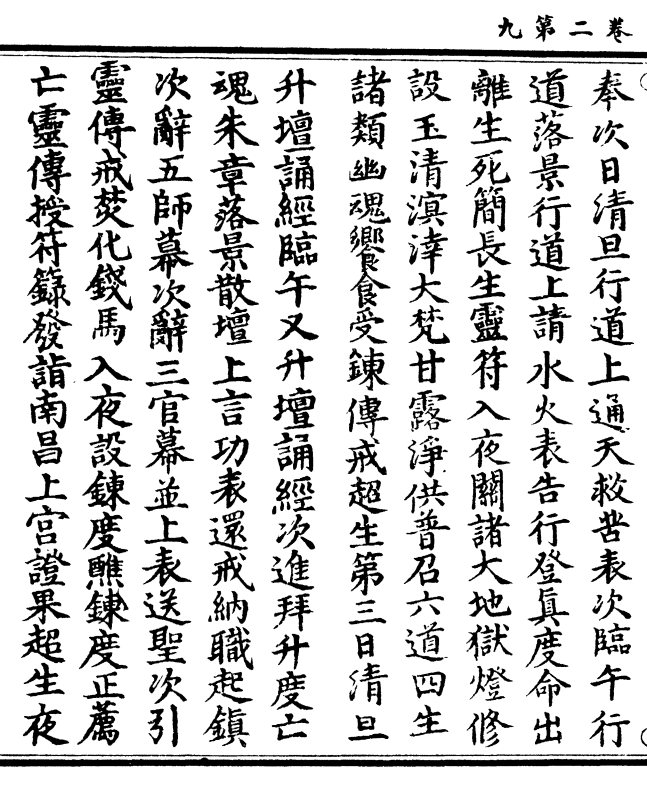 卷二第九
奉次日清旦行道上通天救苦表次臨午行
道落景行道上請水火表告行登真度命出
離生死簡長生靈符入夜關諸大地獄燈修
設玉清溟涬大梵甘露淨供普召六道四生
諸類幽魂饗食受鍊傳戒超生第三日清旦
升壇誦經臨午又升壇誦經次進拜升度亡
魂朱章落景散壇上言功表還戒納職起鎮
次辭五師幕次辭三官幕並上表送聖次引
靈傳戒焚化錢馬入夜設鍊度醮鍊度正薦
亡靈傳授符籙發詣南昌上宮證果超生夜